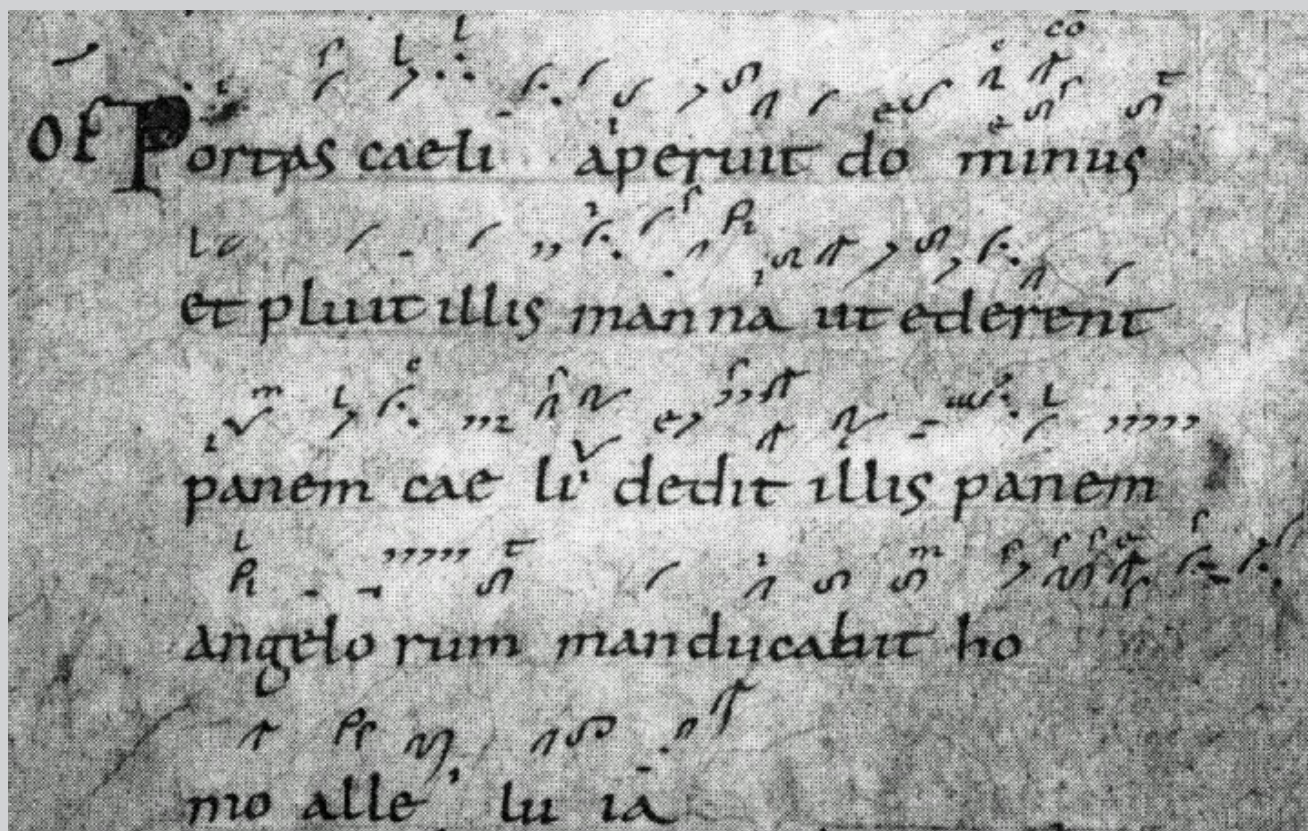 OF Portas caeli aperuit do minus
et pluit illis manna ut ederent
panem cae li dedit illis panem
angelo rum manducabit ho
mo alle lu ia